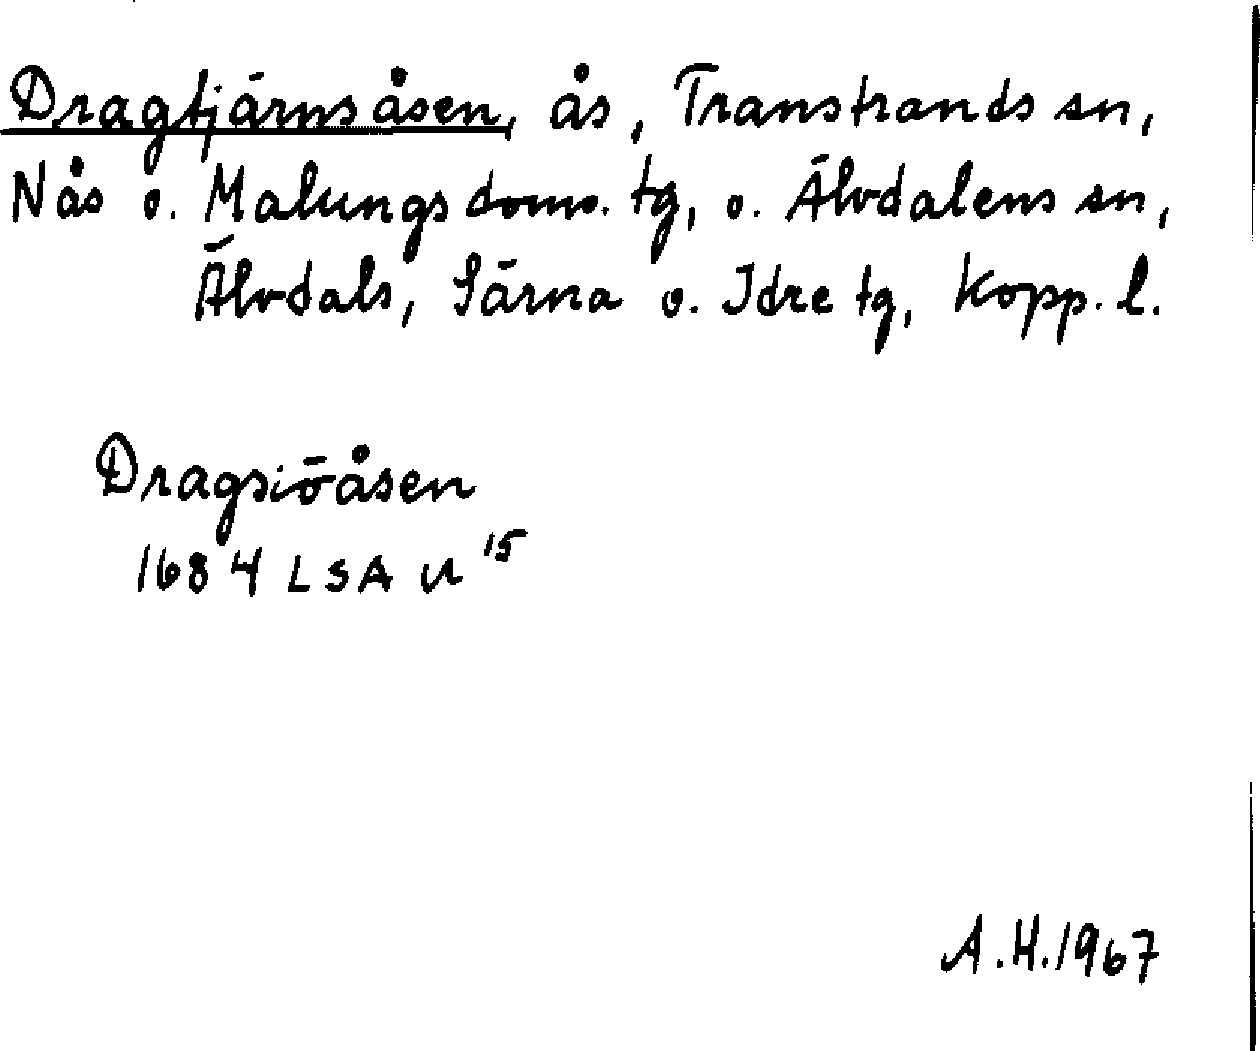 Dragtjärnsåsen, ås, Transtrands sn,
Nås o. Malungs doms. tg, o. Älvdalens sn,
Älvdals, Särna o. Idre tg, Kopp. l.
Dragsiöåsen
1684 LSA u 15
A.H. 1967